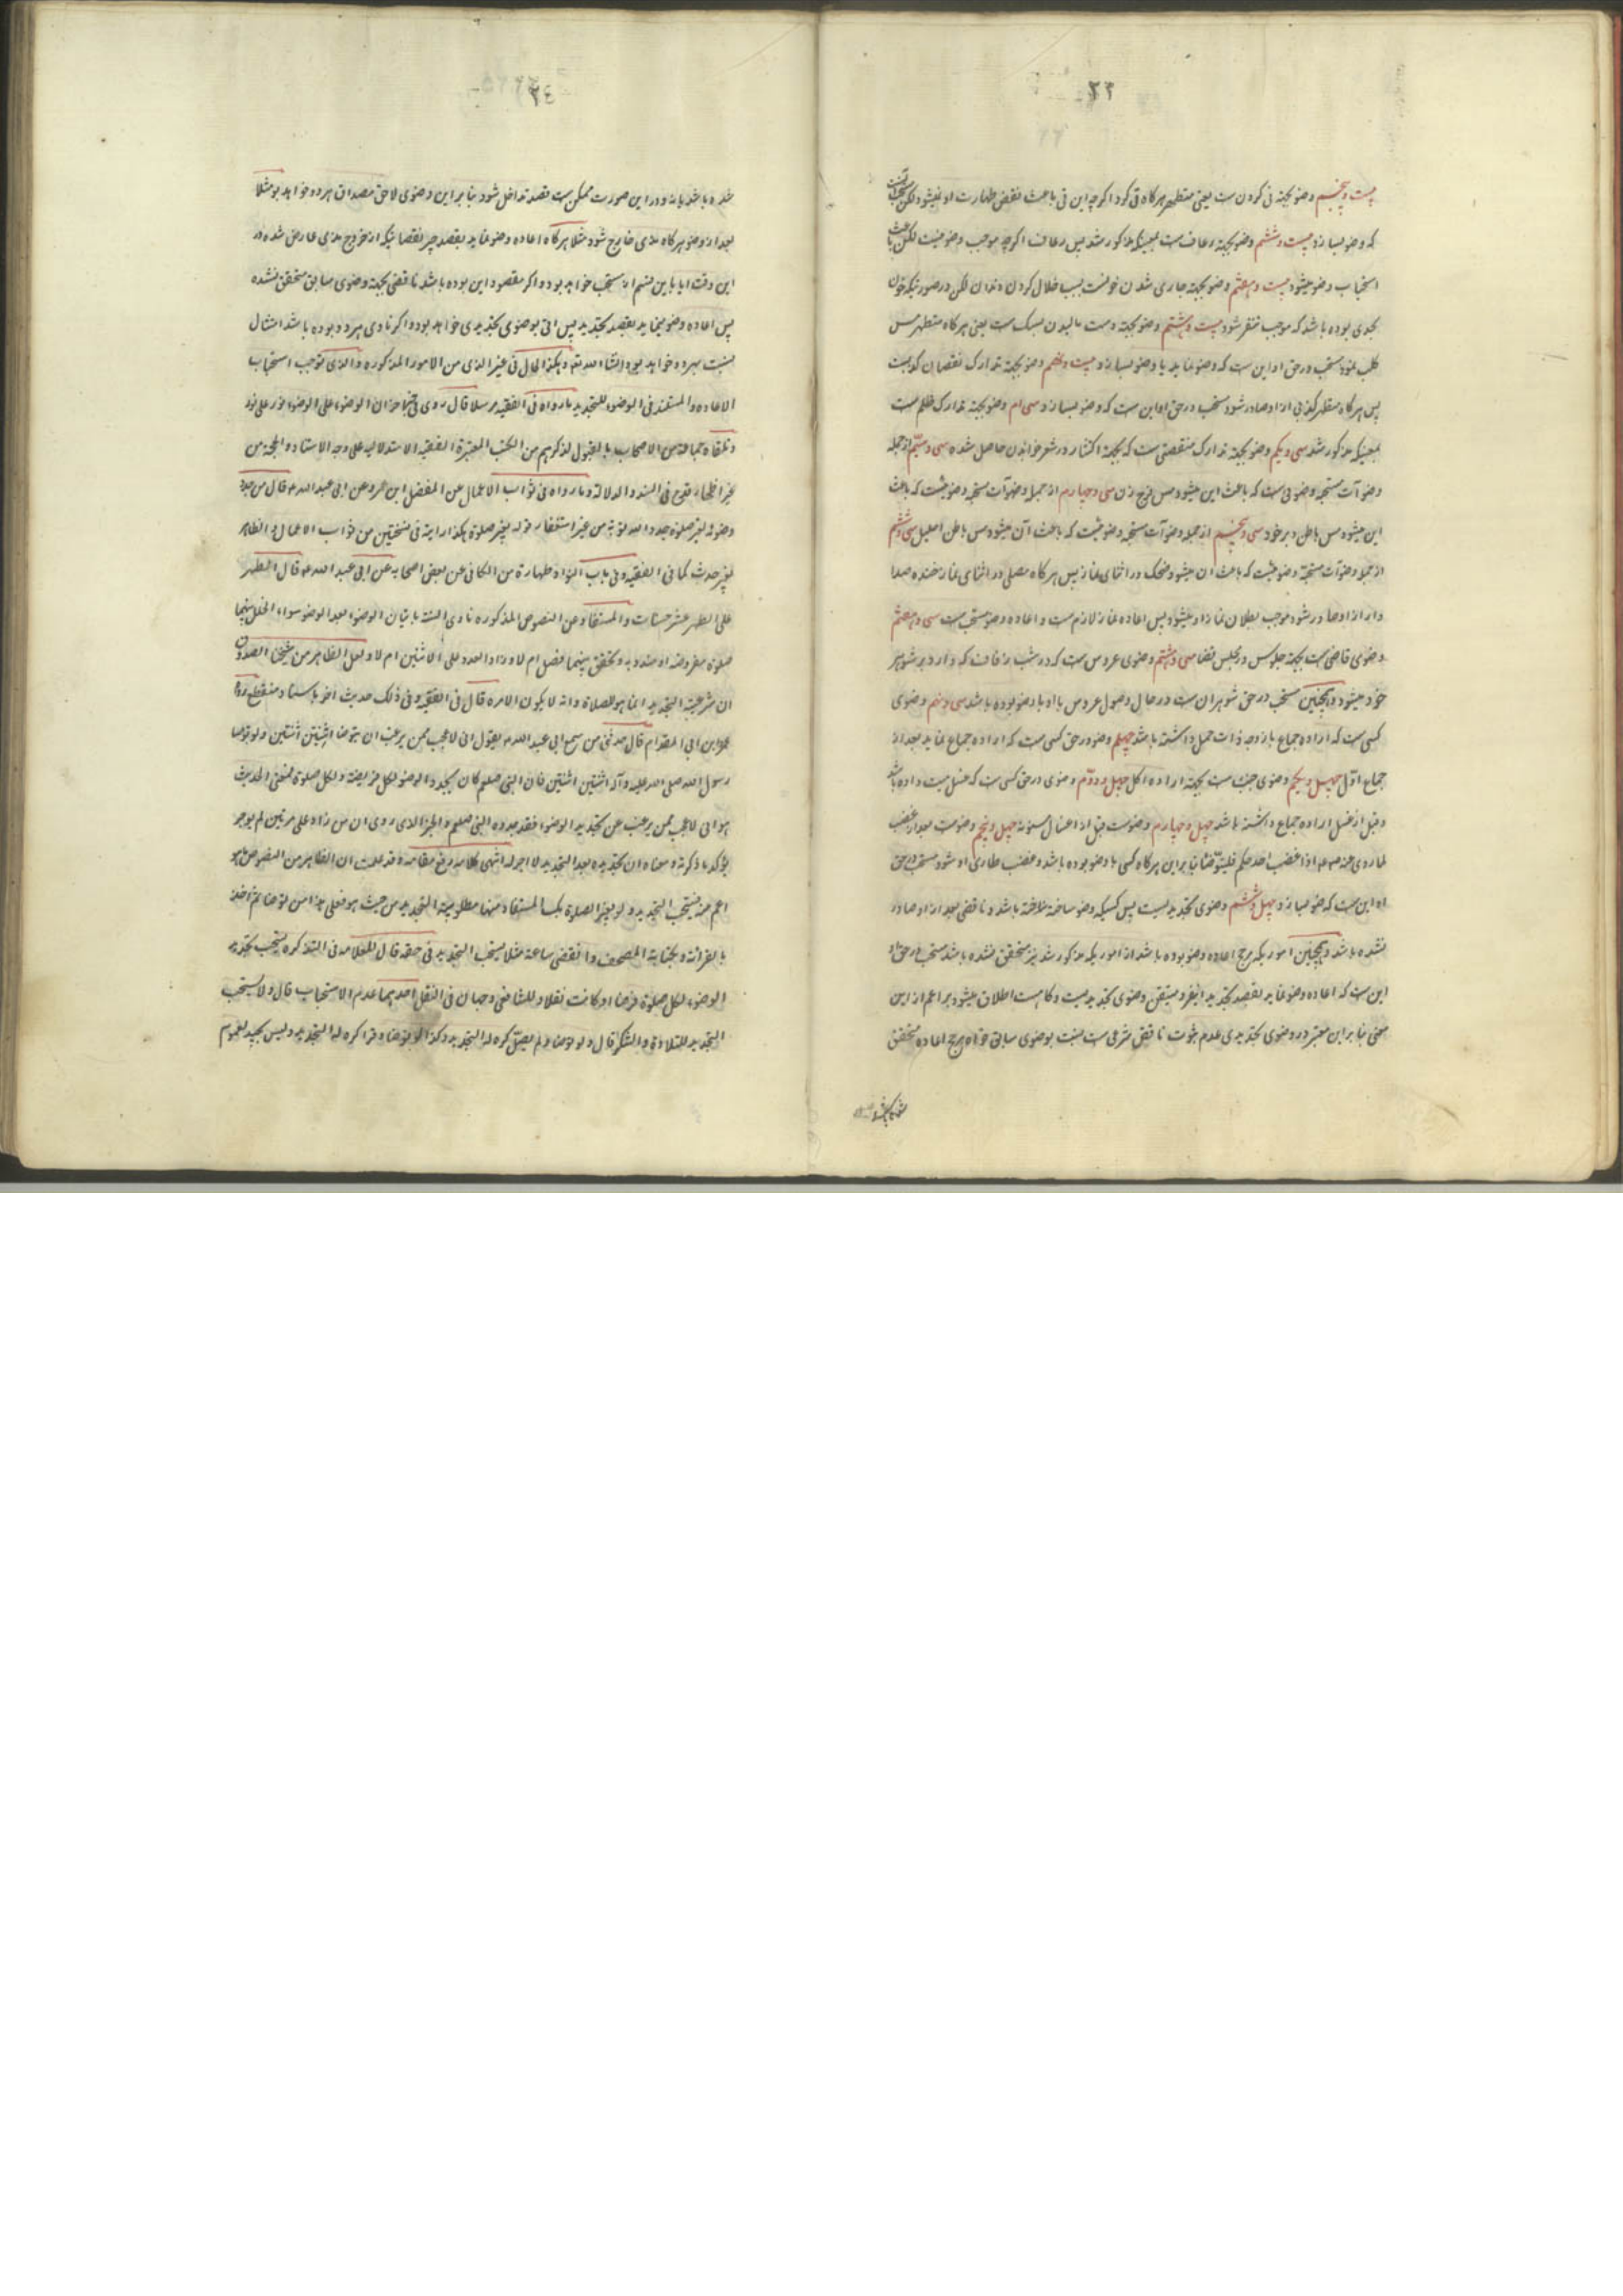 ۲۳
بیست و پنجم وضو بجهة قی کردن ست یعنی متطهر هرکاه قی کرد اکرچه این قی باعث نقض طهارت او نمیشود لکن
که وضو بسازد بیست و ششم وضو بجهة رعاف ست بمعنیکه مذکور شد پس رعاف اکرچه موجب وضو نیست لکن باعث
استحباب وضو میشود بیست و هفتم وضو بجهة جاری شدن خونست بسبب خلال کردن دندان لکن در صورتیکه خون
بحدی بوده باشد که موجب تنفر شود بیست و هشتم وضو بجهة دست مالیدن بسک ست یعنی هرکاه متطهر مس
کلب نمود مستحب در حق او این ست که وضو نماید یا وضو بسازد بیست و نهم وضو بجهة تدارک نقصان کذبست
پس هرکاه متطهر کذبی از او صادر شود مستحب در حق او این ست که وضو بسازد سی ام وضو بجهة تدارک ظلم ست
بمعنیکه مذکور شد سی و یکم وضو بجهة تدارک منقصتی ست که بجهة اکثار در شعر خواندن حاصل شده
وضوآت مستحبه وضوئی ست که باعث این میشود مس فرج زن سی و چهارم از جمله وضوآت مستحبه وضوئیست که باعث
این میشود مس باطن دبر خود سی و پنجم از جمله وضوآت مستحبه وضوئیست که باعث آن میشود مس باطن احلیل سی و ششم
از جمله وضوآت مستحبه وضوئیست که باعث آن میشود ضحک در اثنای نماز پس هرکاه مصلی در اثنای نماز خنده صدا
دار از او صادر شود موجب بطلان نماز او میشود پس اعاده نماز لازم ست و اعاده وضو مستحب ست سی و هفتم
وضوی قاضی ست بجهة جلوس در مجلس قضا سی و هشتم وضوی عروس ست که در شب زفاف که وارد بر شوهر
خود میشود و همچنین مستحب در حق شوهران ست در حال وصول عروس با او با وضو بوده باشد سی و نهم وضوی
کسی ست که اراده جماع با زوجه ذات حمل داشته باشد چهلم وضو در حق کسی ست که اراده جماع نماید بعد از
جماع اوّل چهل و یکم وضوی جنب ست بجهة اراده اکل چهل و دوّم وضوی در حق کسی ست که غسل میت داده باشد
و قبل از غسل اراده جماع داشته باشد چهل و چهارم وضوست قبل از اغسال مسنونه چهل و پنجم وضوست بعد از غضب
لما روی عنه اذا غضب احدکم فلیتوضّأ بنابراین هرکاه کسی با وضو بوده باشد و غضب طاری او شود مستحب در حق
او این ست که وضو بسازد چهل و ششم وضوی تجدیدیست پس کسیکه وضو ساخته باشد و ناقضی بعد از او صادر
نشده باشد و همچنین اموریکه مرجح اعاده وضو بوده باشد از اموریکه مذکور شد نیز متحقق نشده باشد مستحب در حق او
این ست که اعاده وضو نماید بقصد تجدید وضوی تجدیدیست و کاهست اطلاق میشود بر اعم از این
معنی بنابراین معتبر در وضوی تجدیدی عدم ثبوت ناقض شرعی ست نسبت بوضوی سابق خواه مرجح اعاده متحقق
۲٤
شده باشد یا نه و در این صورت ممکن ست قصد تداخل شود بنابراین وضوی لاحق مصداق هر دو خواهد بود مثلا
بعد از وضو هرکاه مذی خارج شود مثلا هرکاه اعاده وضو نماید بقصد جبر نقصانیکه از خروج مذی عارض شده در
این وقت مستحب خواهد بود و اکر مقصود این بوده باشد ناقضی بجهة وضوی سابق متحقق نشده
پس اعاده وضو مینماید بقصد تجدید پس اتی بوضوی تجدیدی خواهد بود و اکر ناوی هر دو بوده باشد امتثال
نسبت بهر دو خواهد بود انشاء الله تعالی و هکذا الحال فی غیر المذی من الامور المذکوره و الذی یوجب استحباب
الاعاده و المستند فی الوضوء للتجدید ما رواه فی الفقیه مرسلا قال روی فی خبر آخر ان الوضوء علی الوضوء نور علی نور
و تلقاه جماعة من الاصحاب بالقبول لذکرهم من الکتب المعتبرة الفقهیه الاستدلالیه علی وجه الاستناد و الحجة من
غیر اظهار قدح فی السند و الدلالة و ما رواه فی ثواب الاعمال عن المفضل ابن عمر و عن ابی عبد الله قال من جدد
وضوئه لغیر صلوة جدد الله توبته من غیر استغفار قوله لغیر صلوة هکذا رایته فی نسختین من ثواب الاعمال و الظاهر
لغیر حدث کما فی الفقیه و فی باب النوادر طهارة من الکافی عن بعض اصحابه عن ابی عبد الله قال الطهر
علی الطهر عشر حسنات و المستفاد من النصوص المذکوره تاوی السنة باتیان الوضوء بعد الوضوء سواء تخلل بینهما
صلوة مفروضه او مندوبه و تحقق بینهما فصل ام لا و زاد العدد علی الاثنین ام لا و لعل الظاهر من شیخنا الصدوق
ان شرعیة التجدید انما هو للصلاة و انه لا یکون الامره قال فی الفقیه و فی ذلک حدیث آخر باسناد منقطع رواه
عمرو ابن ابی المقدام قال حدثنی من سمع ابی عبد الله یقول انی لاعجب ممن یرغب ان یتوضا اثنتین اثنتین و قد توضا
رسول الله صلی الله علیه و آله اثنتین اثنتین فان النبی صلعم کان یجدد الوضو لکل فریضة و لکل صلوة فمعنی الحدیث
هو انی لاعجب ممن یرغب عن تجدید الوضوء و قد جدده النبی صلعم و الخبر الذی روی ان من زاد علی مرتین لم یوجر
یؤکد ما ذکرته و معناه ان تجدیده بعد التجدید لا اجر له انتهی کلامه رفع مقامه و قد علمت ان الظاهر من النصوص هو
اعم منه یستحب التجدید و لو لغیر الصلوة المستفاد منها مطلوبیة التجدید من حیث هو فعلی هذا من توضا ثم اخذ
بالقرائة و بکتابة المصحف و انقضی ساعة مثلا یستحب التجدید فی حقه قال العلامه فی التذکره یستحب تجدید
الوضوء لکل صلوة فرضا او کانت نفلا و للشافعی وجهان فی النفل احدهما عدم الاستحباب قال و لا یستحب
التجدید للتلاوة و الشکر قال و لو توضا و لم یصلّ کره له التجدید و کذا لو توضا و قرأ کره له التجدید و لیس بجید لعموم